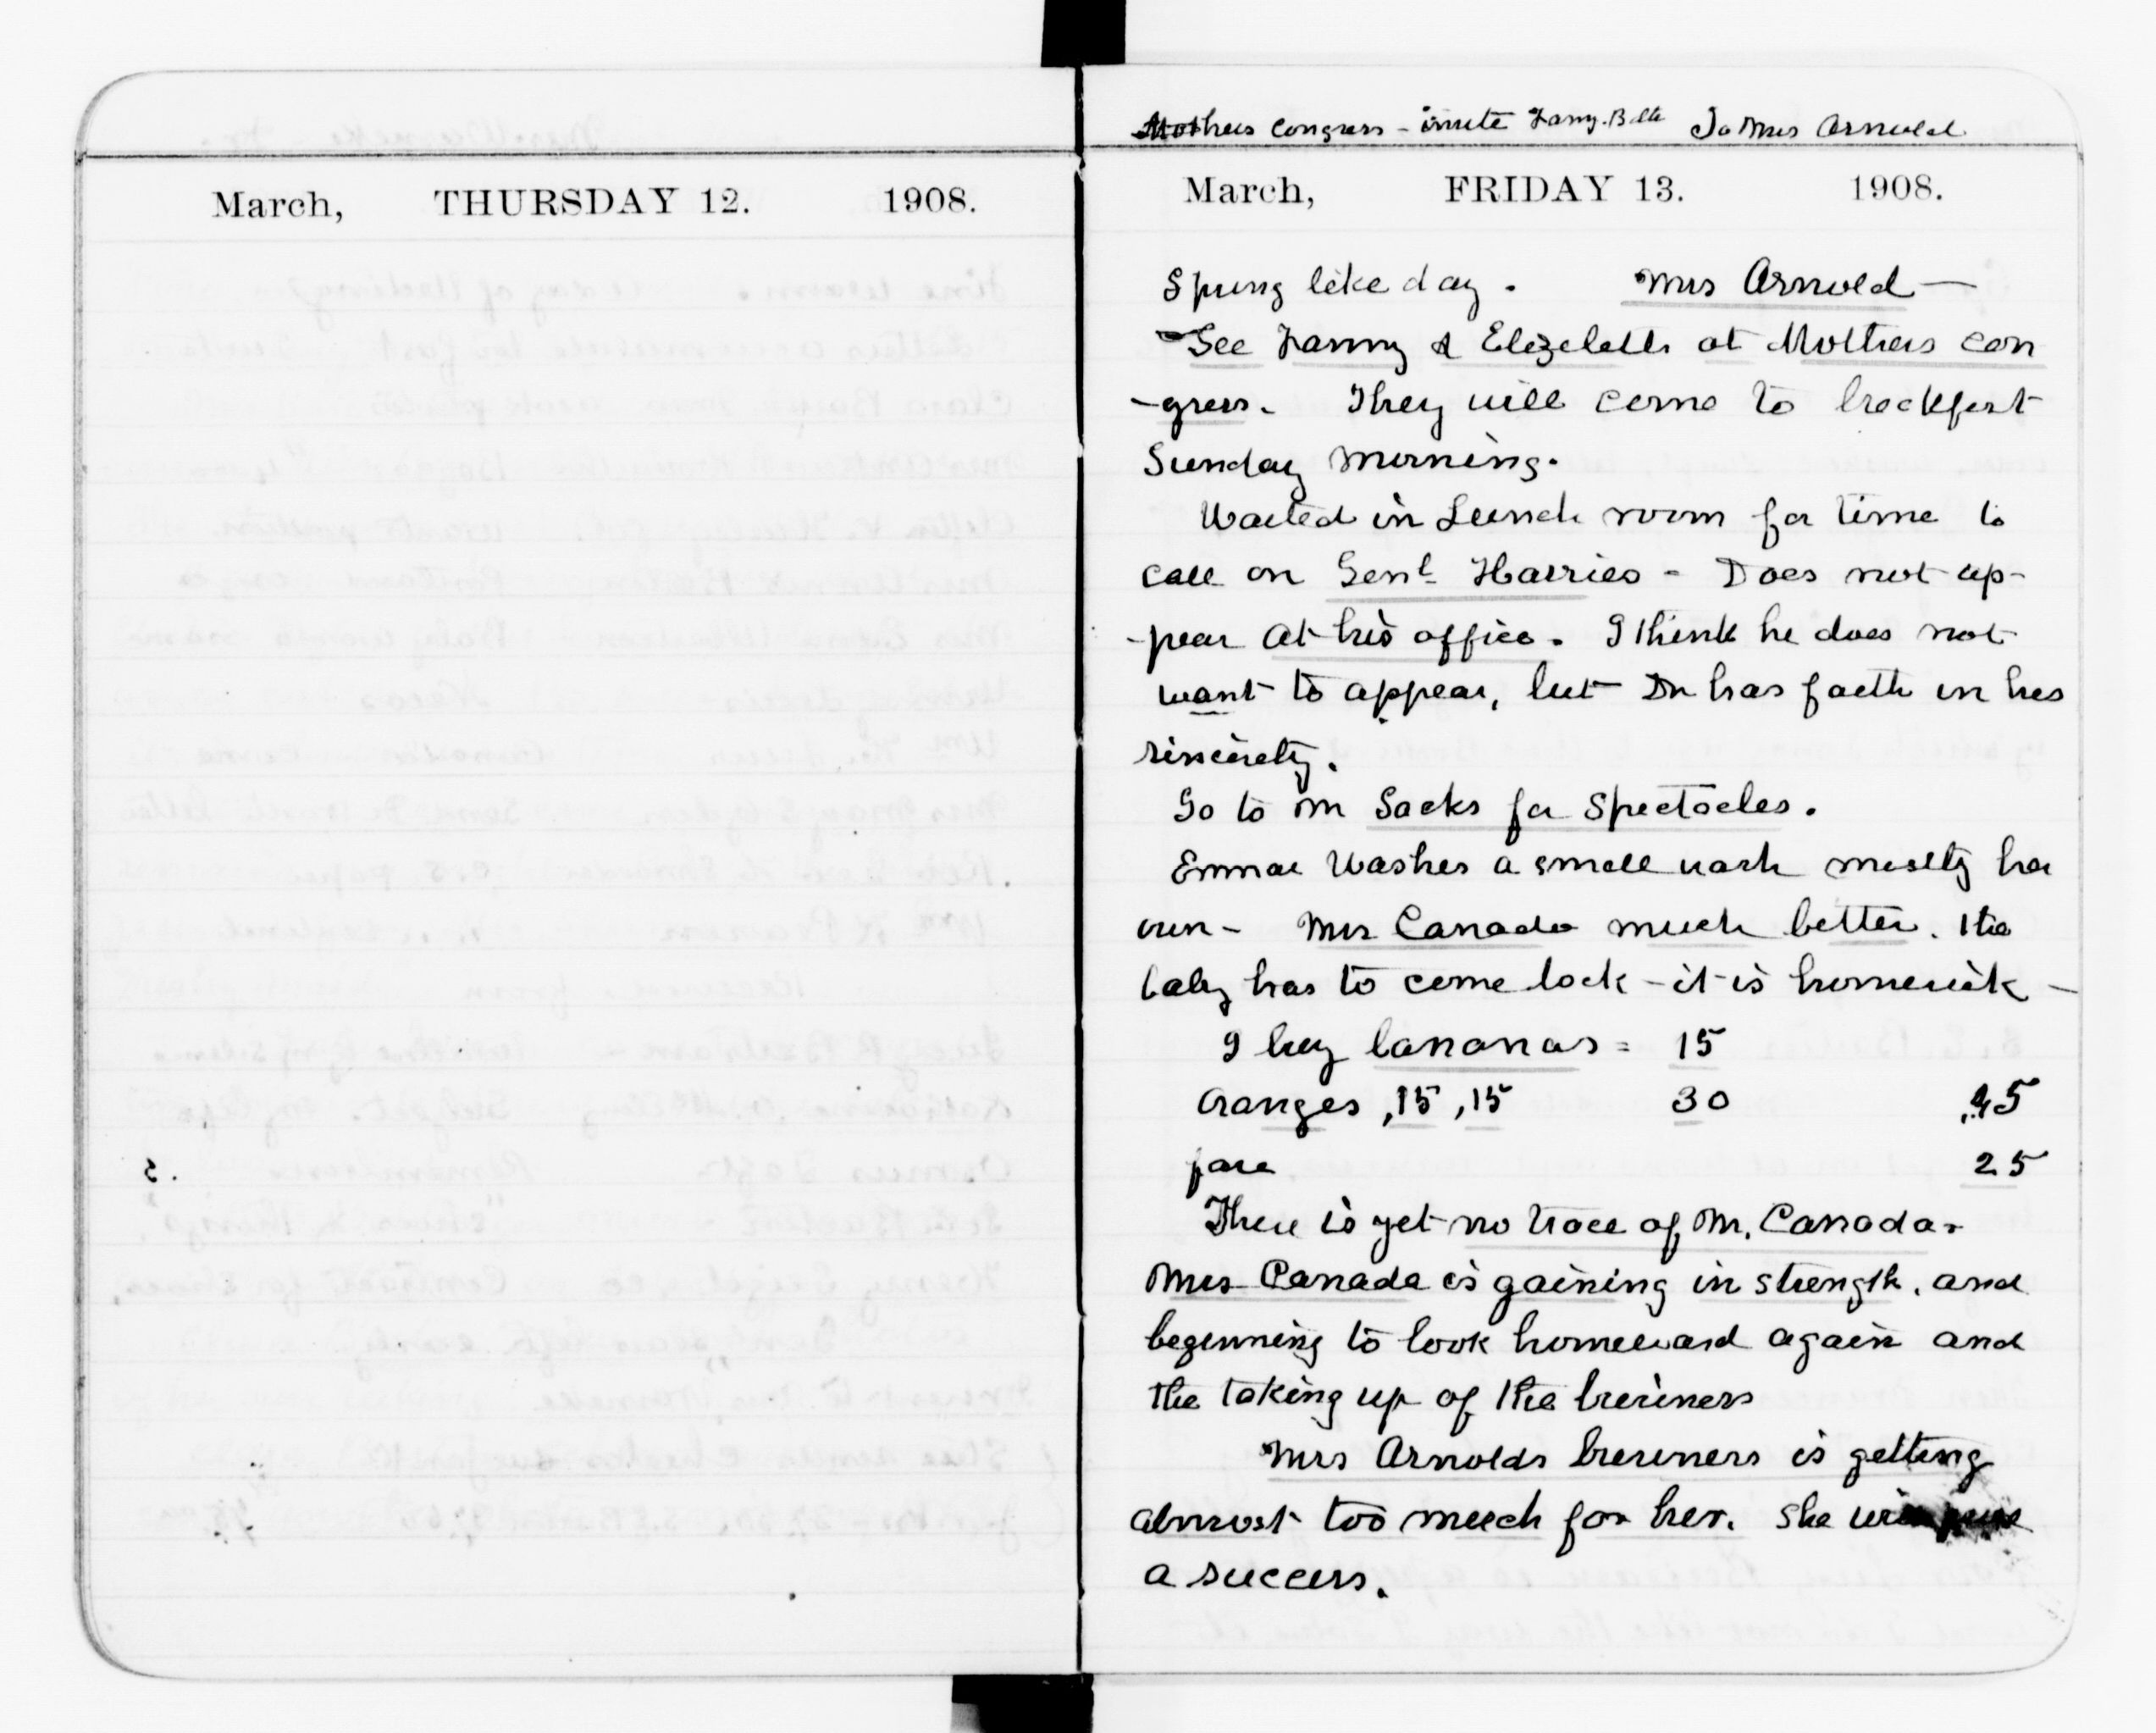 March, THURSDAY 12. 1908.
Mothers Congress - invite Fanny. Bella To Mrs Arnold
March, FRIDAY 13. 1908.
Spring like day. Mrs Arnold —
See Fanny & Elizebeth at Mothers con
-gress. They will come to breckfast
Sunday morning.
Waited in Lunch room for time to
call on Genl. Harries - Does not ap-
-pear at his office. I think he does not
want to appear, but Dr has faith in his
sincerety.
Go to Mr Sacks for Spectacles.
Emma Washes a small wash mostly her
own - Mrs Canada much better. The
baby has to come back - it is homesick -
I buy bananas = 15
Oranges ,15 ,15 30 .45
fare 25
There is yet no trace of Mr. Canada.
Mrs Canada is gaining in strength, and
beginning to look homeward again and
the taking up of the business
Mrs Arnolds business is getting
almost too much for her. She
a success.